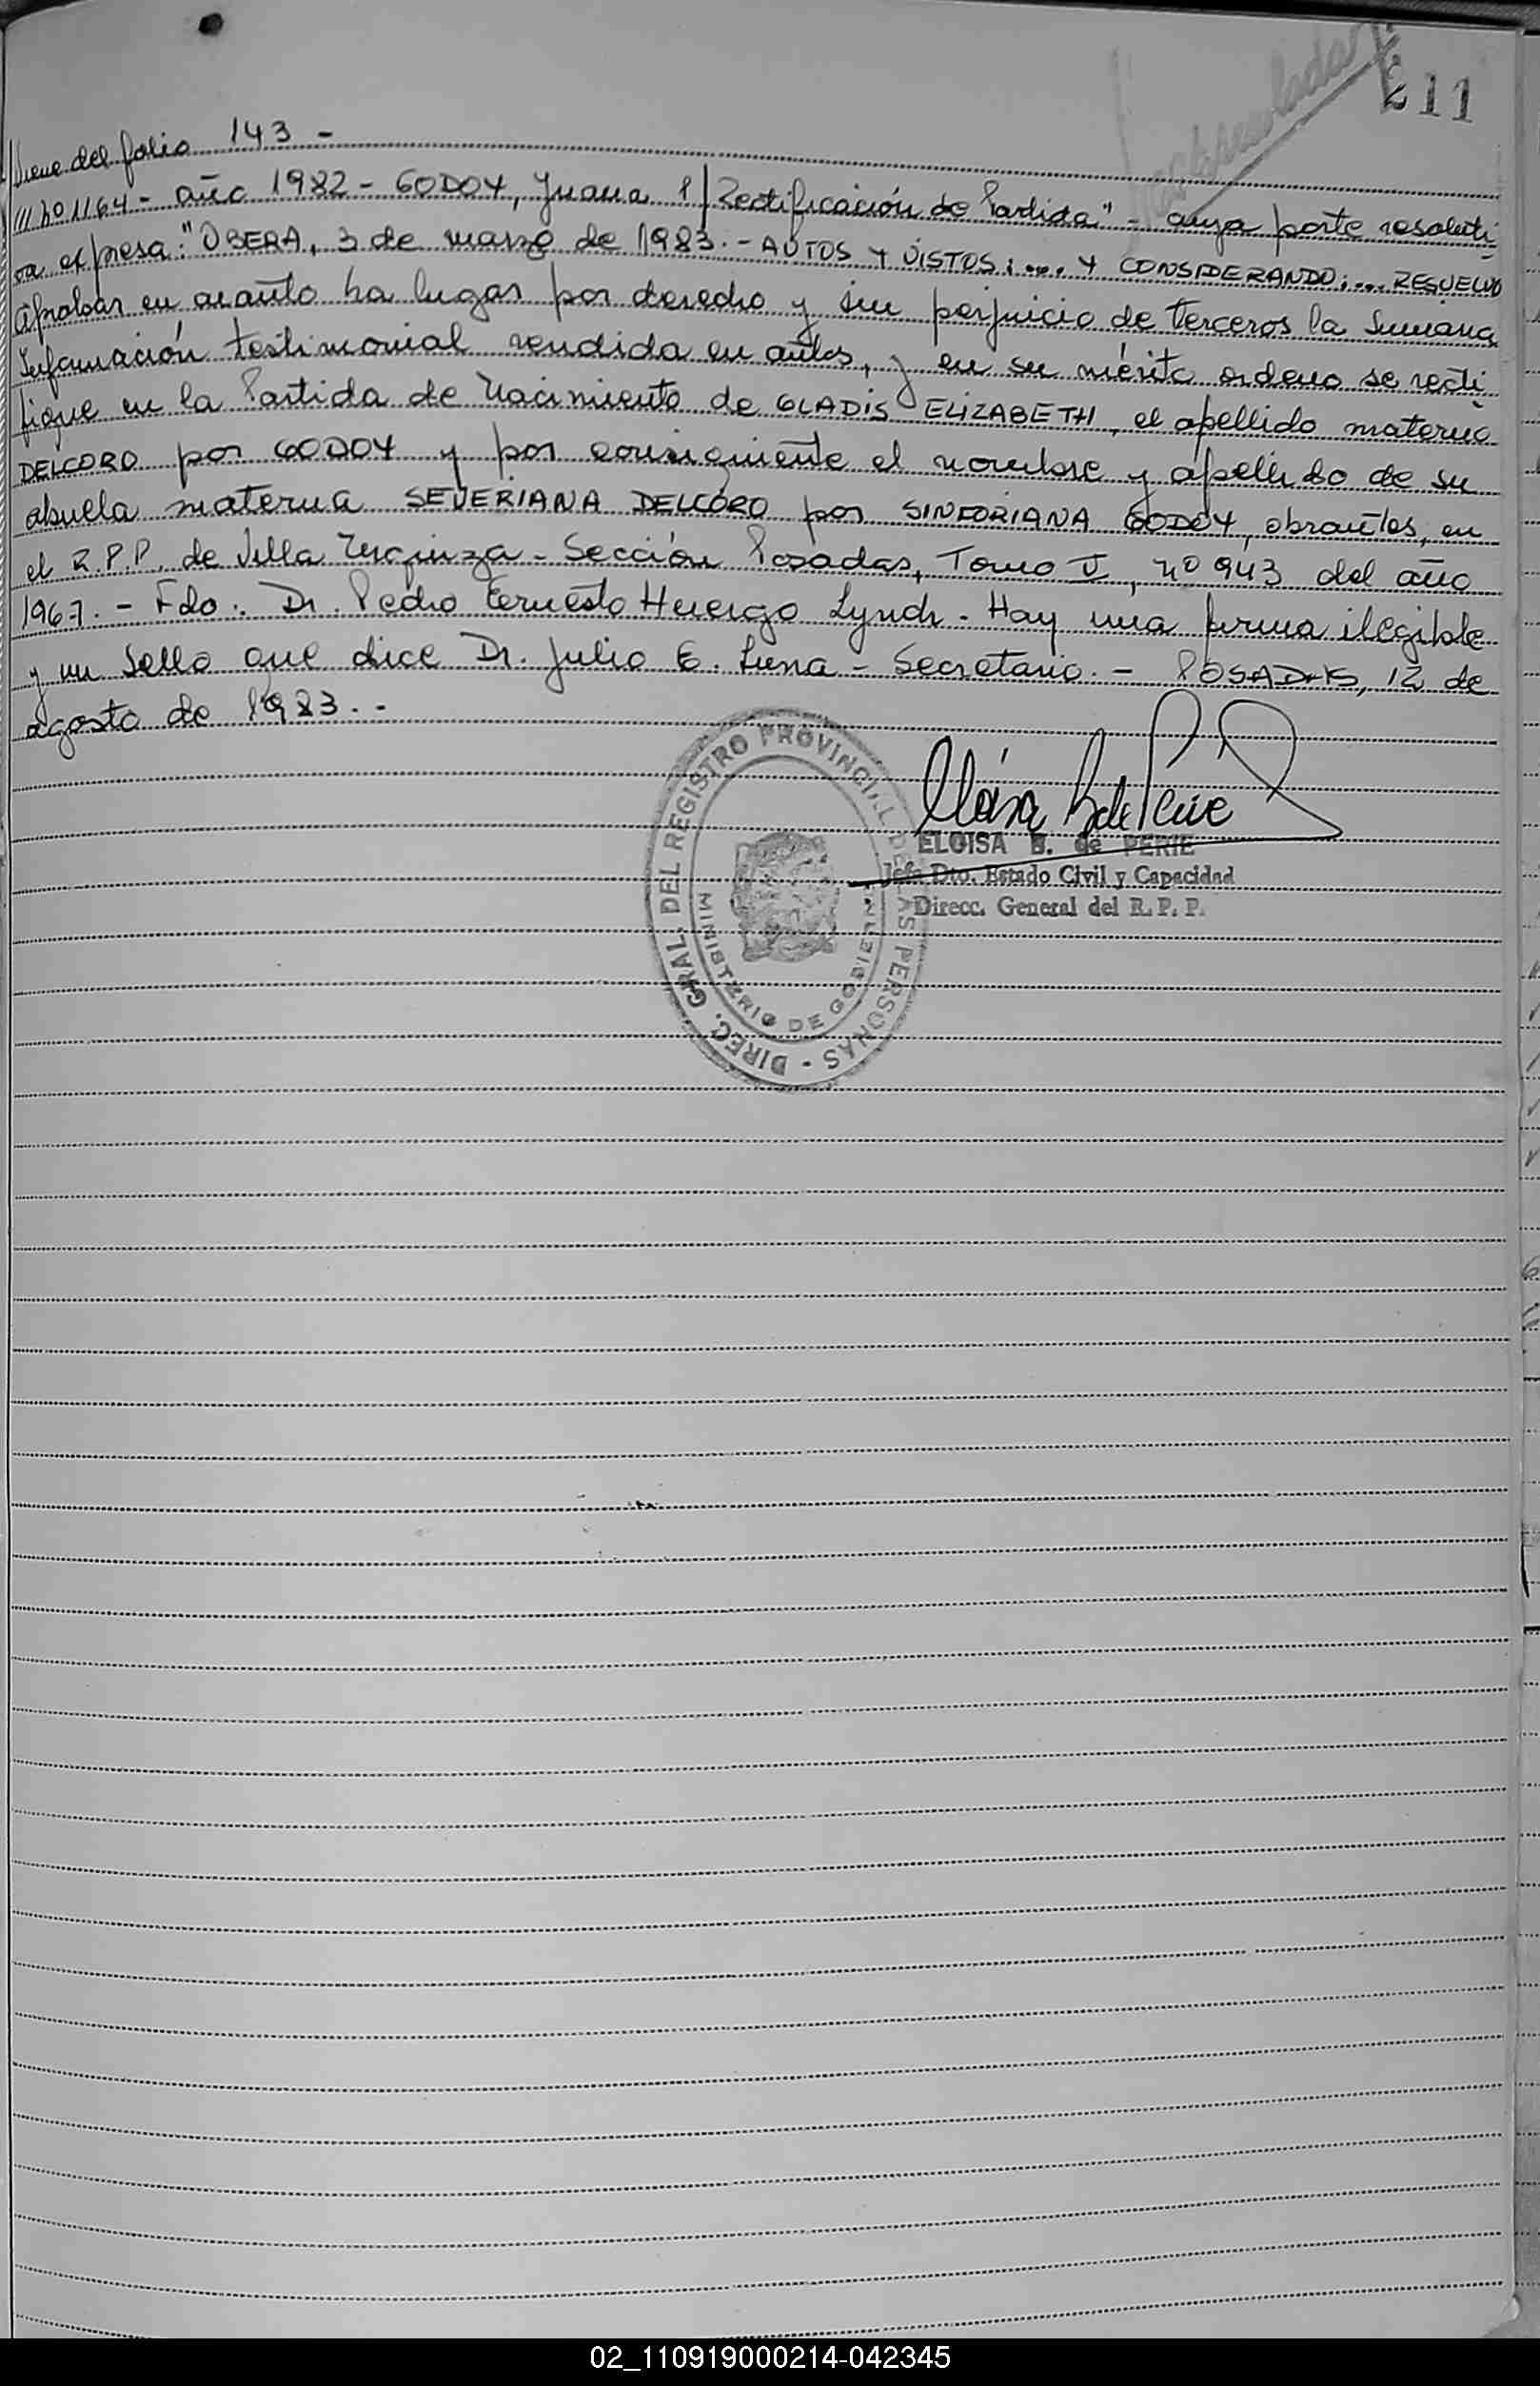 211
Viene del folio 143 -
/// nº 1164 - año 1982 - GODOY, Juana s/ Rectificación de Partida" - cuya parte resoluti
va expresa: "OBERA, 3 de marzo de 1983. - AUTOS Y VISTOS: .... Y CONSIDERANDO: .... RESUELVO
aprobar en cuanto ha lugar por derecho y sin perjuicio de terceros la Sumaria
Información testimonial rendida en autos, y en su mérito ordeno se recti
fique en la Partida de Nacimiento de GLADIS ELIZABETH, el apellido materno
DELCORO por GODOY y por consiguiente el nombre y apellido de su
abuela materna SEVERIANA DELCORO por SINFORIANA GODOY, obrantes, en
el R.P.P. de Villa Urquiza - Sección Posadas, Tomo II, nº 943 del año
1967. - Fdo: Dr. Pedro Ernesto Huergo Lynch - Hay una firma ilegible
y un Sello que dice Dr. Julio E. Luna - Secretario. - POSADAS, 12 de
agosto de 1983. -
DIREC. GRAL. DEL REGISTRO PROVINCIAL DE LAS PERSONAS -
MINISTERIO DE GOBIERNO
ELOISA B. de PERIE
Jefa Dto. Estado Civil y Capacidad
Direcc. General del R. P. P.
02_110919000214-042345